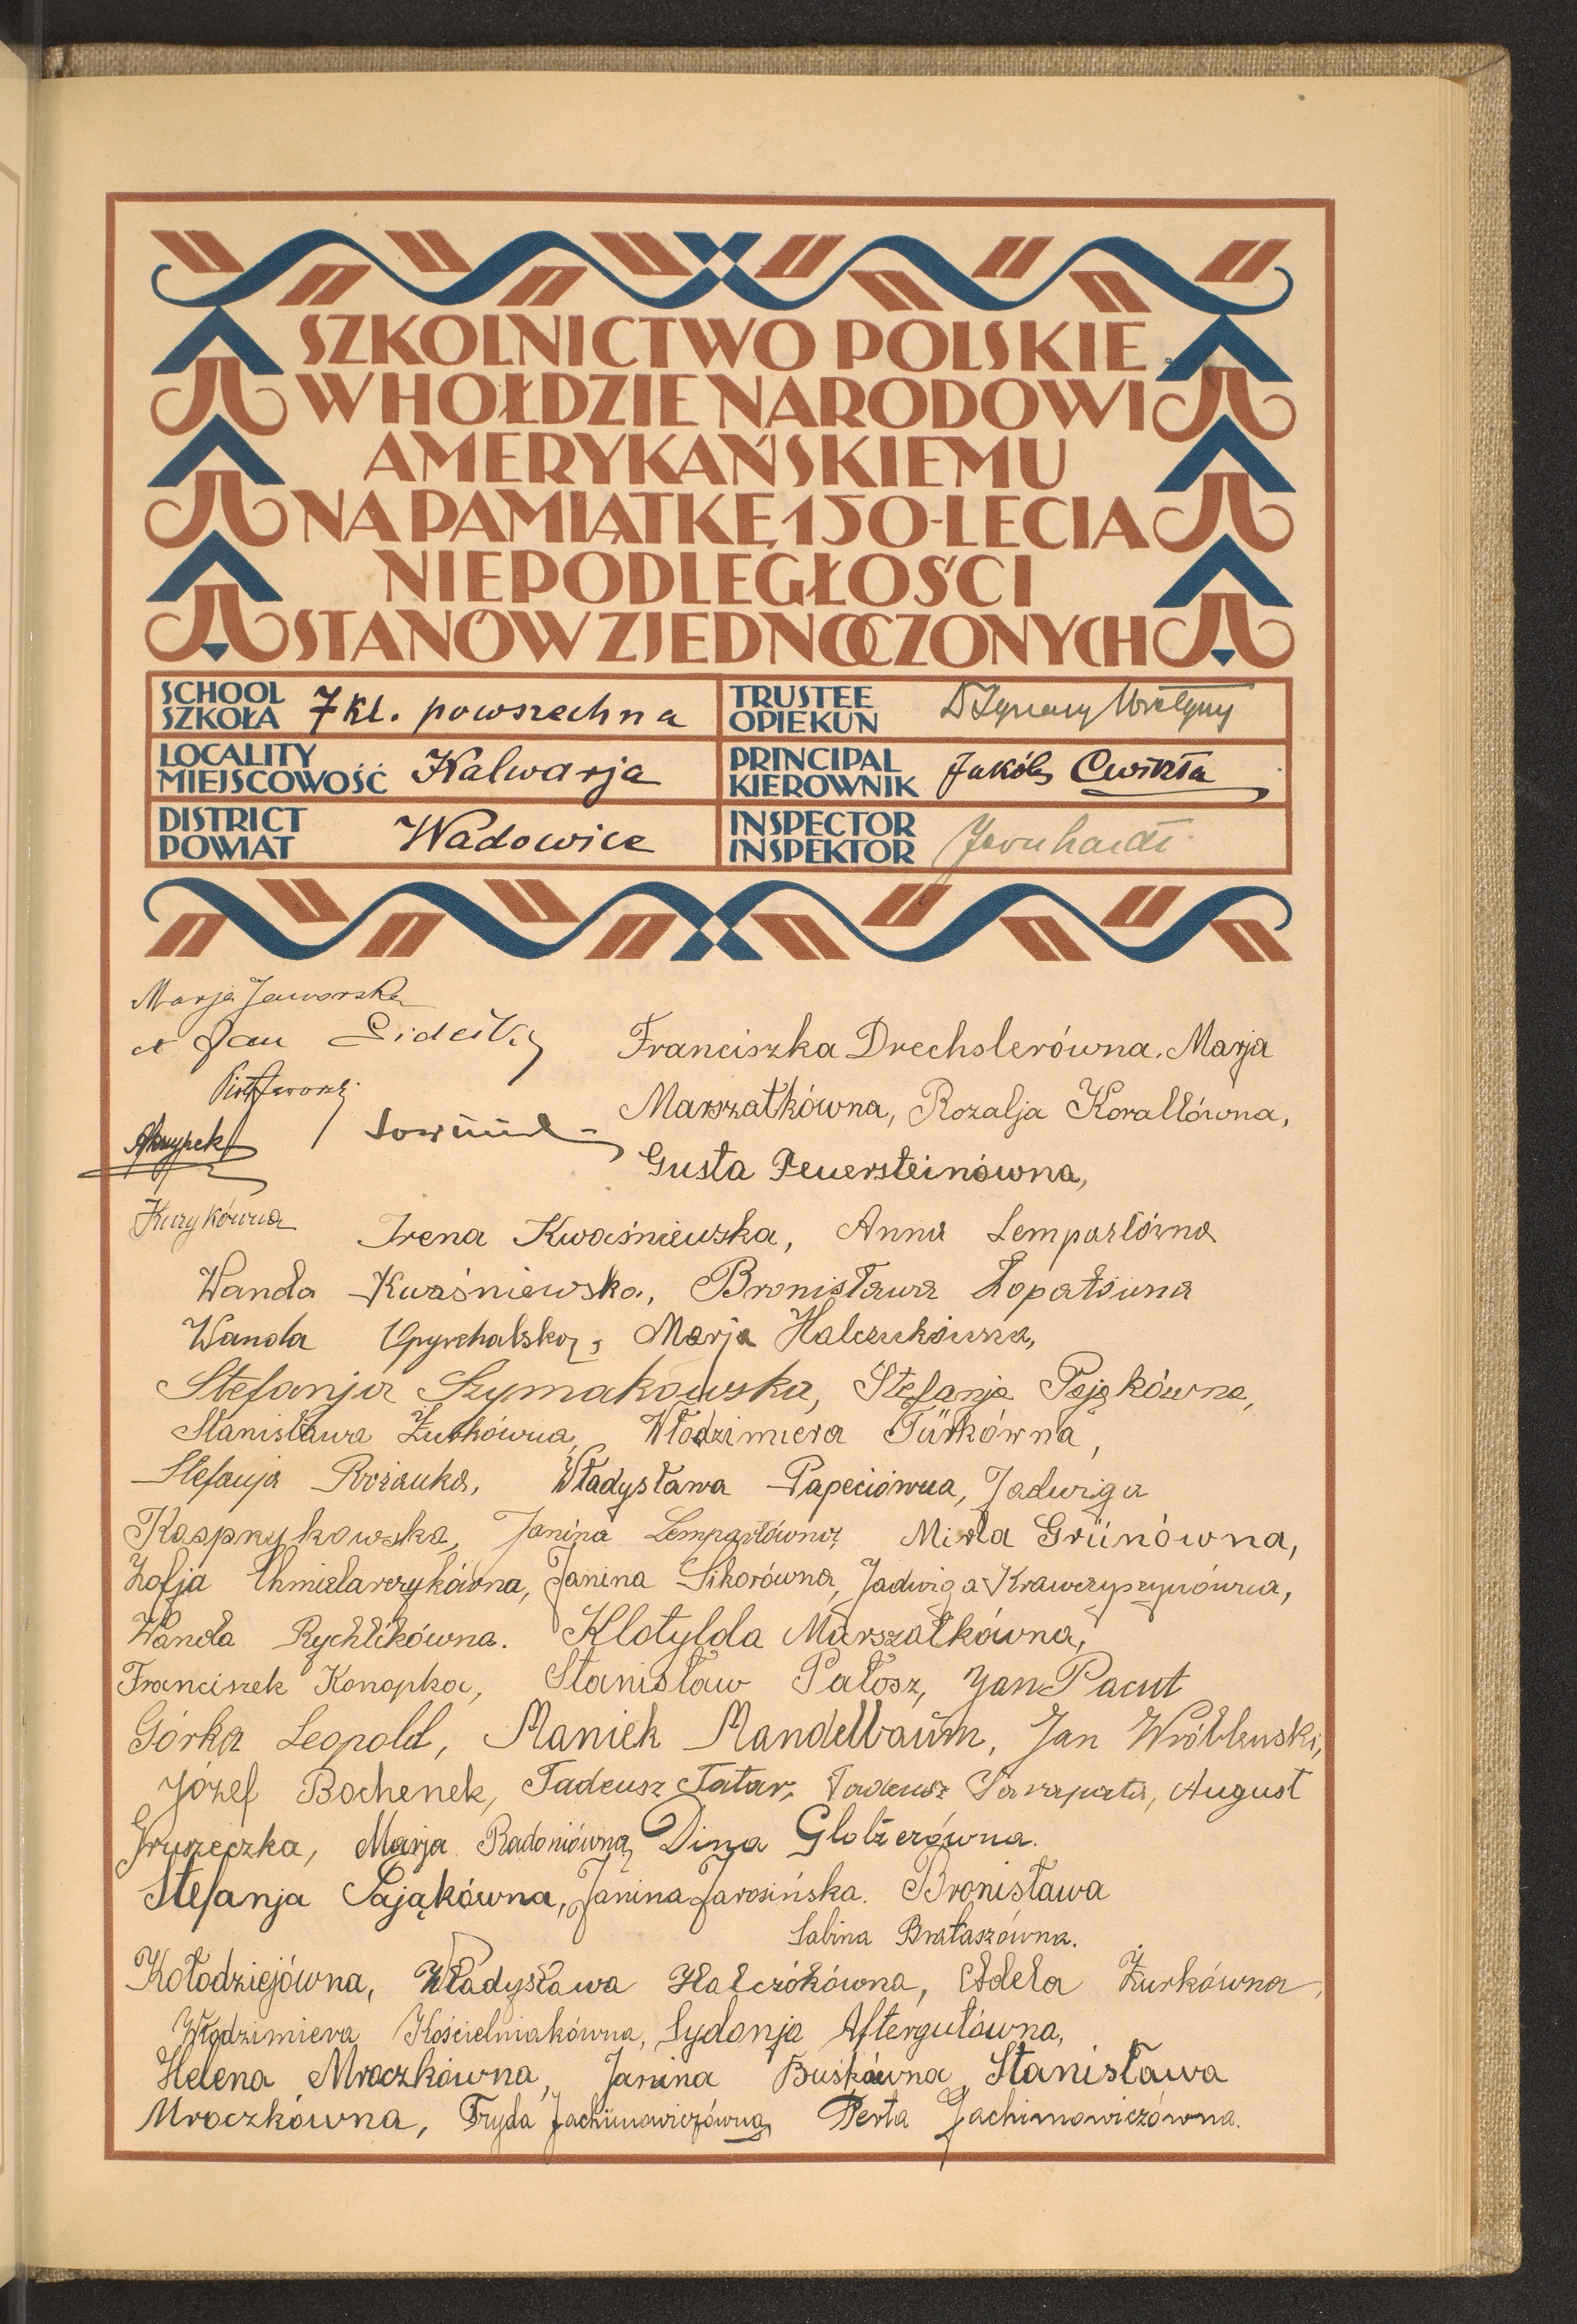 SZKOLNICTWO POLSKIE
W HOŁDZIE NARODOWI
AMERYKAŃSKIEMU
NA PAMIĄTKĘ 150-LECIA
NIEPODLEGŁOŚCI
STANÓW ZJEDNOCZONYCH
SCHOOL
SZKOŁA 7 kl. powszechna
TRUSTEE
OPIEKUN Dr Ignacy
LOCALITY
MIEJSCOWOŚĆ Kalwarja
PRINCIPAL
KIEROWNIK Jakób Ćwikła
DISTRICT
POWIAT Wadowice
INSPECTOR
INSPEKTOR
Marja Jaworska
Jan
Franciszka Drechslerówna, Marja
Marszałkówna, Rozalja Korallówna,
Skrzypek
Gusta Feuersteinówna,
Irena Kwaśniewska, Anna Lempartówna
Wanda Kwaśniewska, Bronisława Łopatówna
Wanda Opyrchalska, Marja Halczukówna,
Stefanja Szymakowska, Stefanja Pająkówna,
Stanisława Żurkówna, Włodzimiera Türkówna,
Stefanja Różańka, Władysława Papeciówna, Jadwiga
Kasprzykowska, Janina Lempartówna, Mirla Grünówna,
Zofja Chmielarczykówna, Janina Sikorówna, Jadwiga Krawczyszynówna,
Wanda Rychlikówna. Klotylda Marszałkówna,
Franciszek Konopka, Stanisław Pałosz, Jan Pacut
Górka Leopold, Maniek Mandelbaum, Jan Wróblewski,
Józef Bochenek, Tadeusz Tatar, Tadeusz Sarapata, August
Gruszeczka, Marja Radoniówna, Dina Globerówna.
Stefanja Pająkówna, Janina Jarosińska. Bronisława
Sabina Brataszówna.
Kołodziejówna, Władysława Halczókówna, Adela Żurkówna,
Włodzimiera Kościelniakówna, Sydonja Aftergutówna,
Helena Mroczkówna, Janina Buśkówna, Stanisława
Mroczkówna, Fryda Jachimowiczówna, Perla Jachimowiczówna.